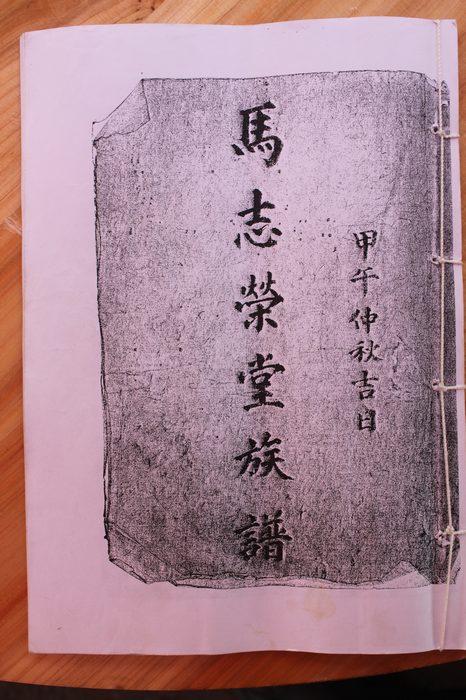 甲午仲秋吉日
馬志榮堂族譜